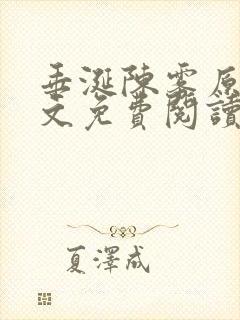 垂涎陳雾原
文免費閱讀
夏澤成